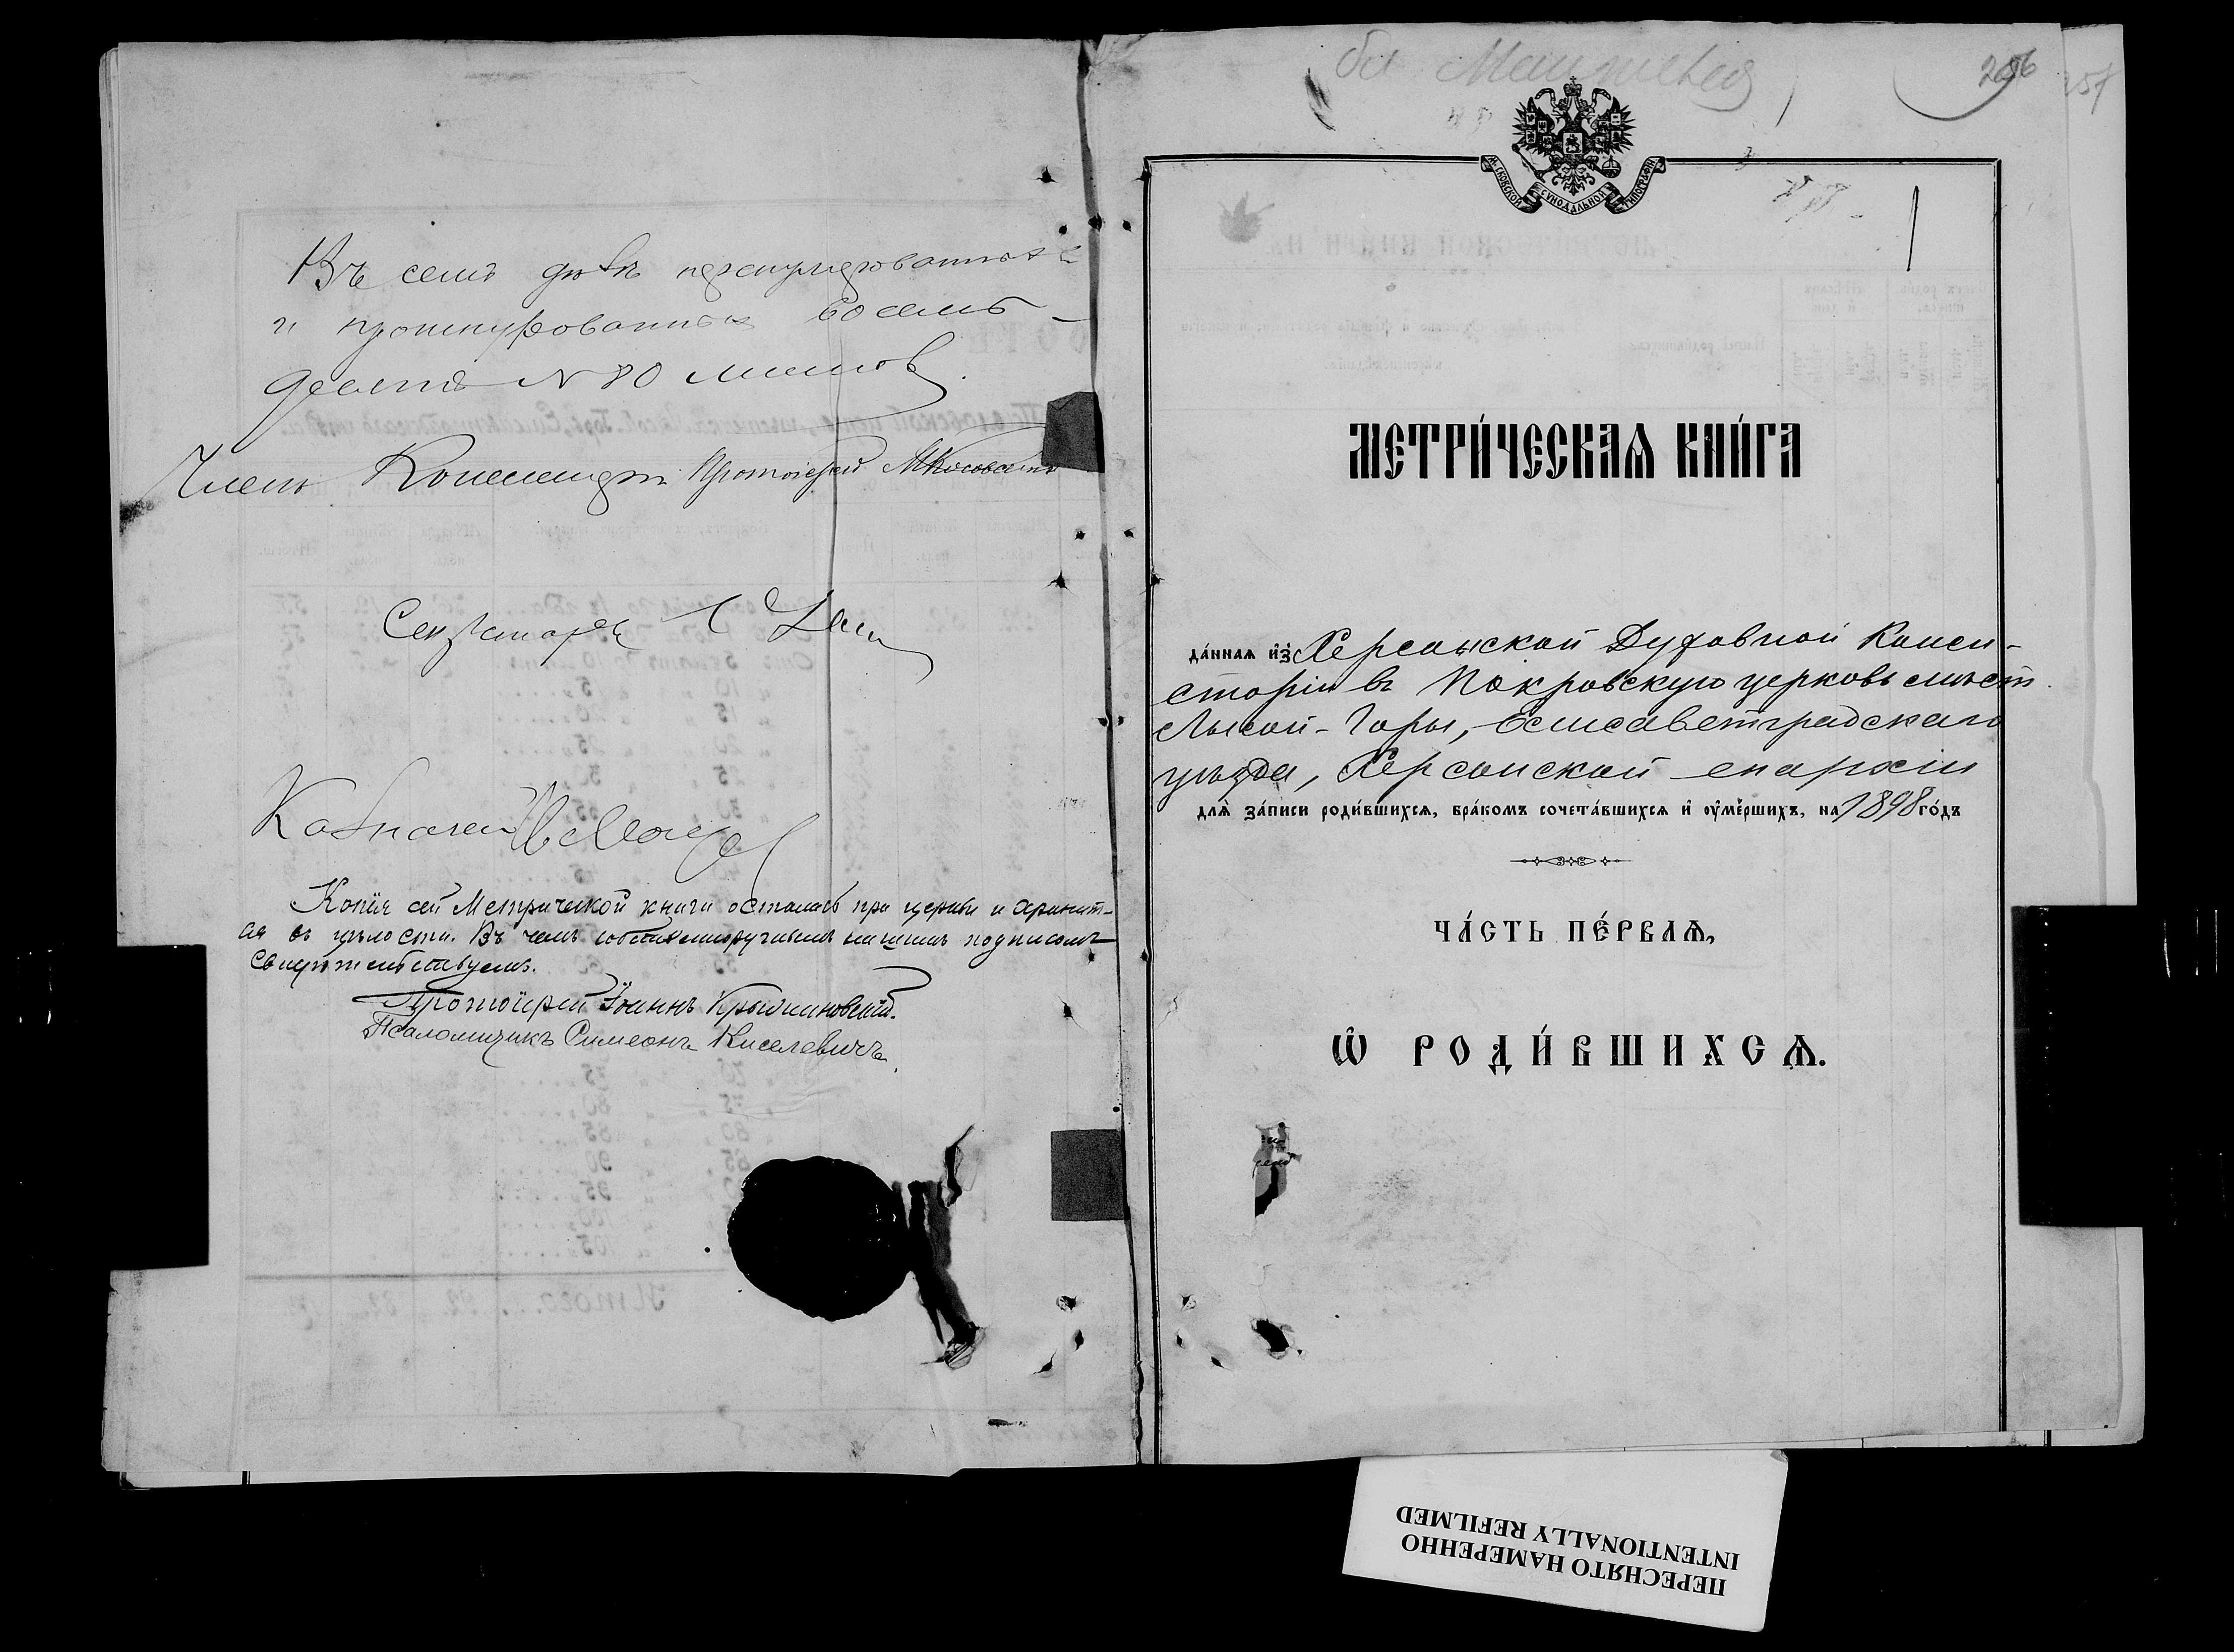 Въ семъ
и прошнурованныхъ восемь-
десятъ № 80 листовъ.
Членъ Консисторіи Протоіерей
Секретарь
Казначей
Копія сей Метрической книги осталась при церкви и хранит-
ся въ цѣлости. Въ чемъ собственноручнымъ нашимъ подписомъ
свидѣтельствуемъ.
Протоіерей Іоаннъ Крыжановскій.
Псаломщикъ Симеонъ Киселевичъ.
256
257
МОСКОВСКОЙ СѴНОДАЛЬНОЙ ТИПОГРАФІИ
1
МЕТРИ́ЧЕСКАѦ КНИ́ГА
да́ннаѧ и҆з̾ Херсонской Духовной Конси-
сторіи въ Покровскую церковь мѣст.
Лысой-Горы, Елисаветградскаго
уѣзда, Херсонской епархіи
длѧ̀ за́писи роди́вшихсѧ, бра́комъ сочета́вшихсѧ и҆ ᲂу҆ме́ршихъ, на 1898 го́дъ
ЧА́СТЬ ПЕ́РВАѦ,
Ѡ҆ РОДИ́ВШИХСѦ.
ПЕРЕСНЯТО НАМЕРЕННО
INTENTIONALLY REFILMED